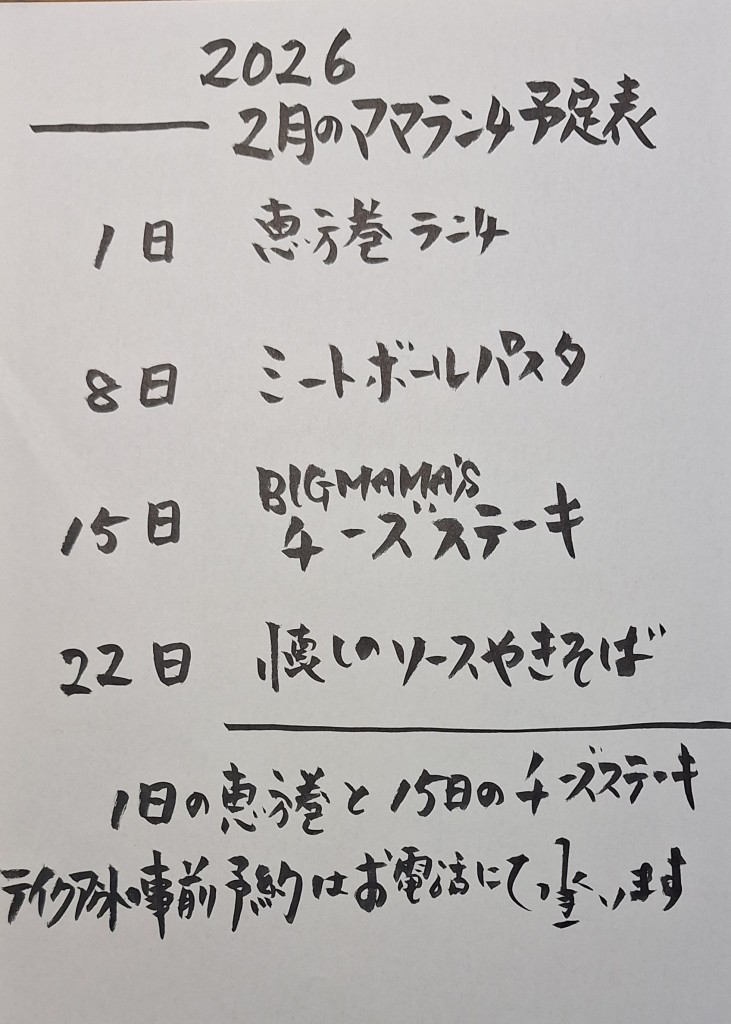 2026
2月のアマランチ予定表
1日 恵方巻ランチ
8日 ミートボールパスタ
15日 BIGMAMA'S
チーズステーキ
22日 懐しのソースやきそば
1日の恵方巻と15日のチーズステーキ
テイクアウトの事前予約はお電話にて承います